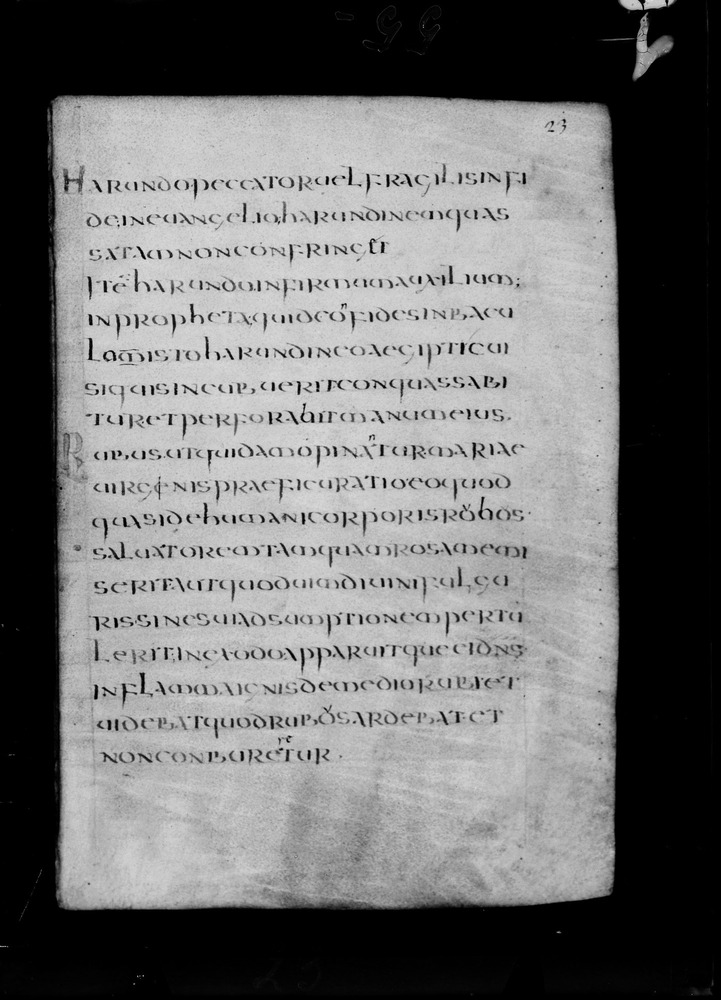 23
HARUNDO PECCATOR UEL FRAGILIS IN FI
DE, IN EUANGELIO, HARUNDINEM QUAS
SATAM NON CONFRINGET
ITĒ HARUNDO, INFIRMUM AUXILIUM;
IN PROPHETA, QUID CONFIDES IN BACU
LAM ISTO HARUNDINEO AEGIPTI CUI
SI QUIS INCUBUERIT CONQUASSABI
TUR ET PERFORABIT MANUM EIUS.
RUBUS, UT QUIDAM OPINANTUR MARIAE
UIRGINIS PRAEFIGURATIO EO QUOD
QUASI DE HUMANI CORPORIS RUBOS·
SALUATOREM TAMQUAM ROSAM EMI
SERIT AUT QUOD UIM DIUINI FULGU
RIS SINE SUI ADSUMPTIONEM PERTU
LERIT, IN EXODO APPARUIT QUE EI DNS
IN FLAMMA IGNIS DE MEDIO RUBI ET
UIDEBAT QUOD RUBUS ARDEBAT ET
NON CONBURERETUR.